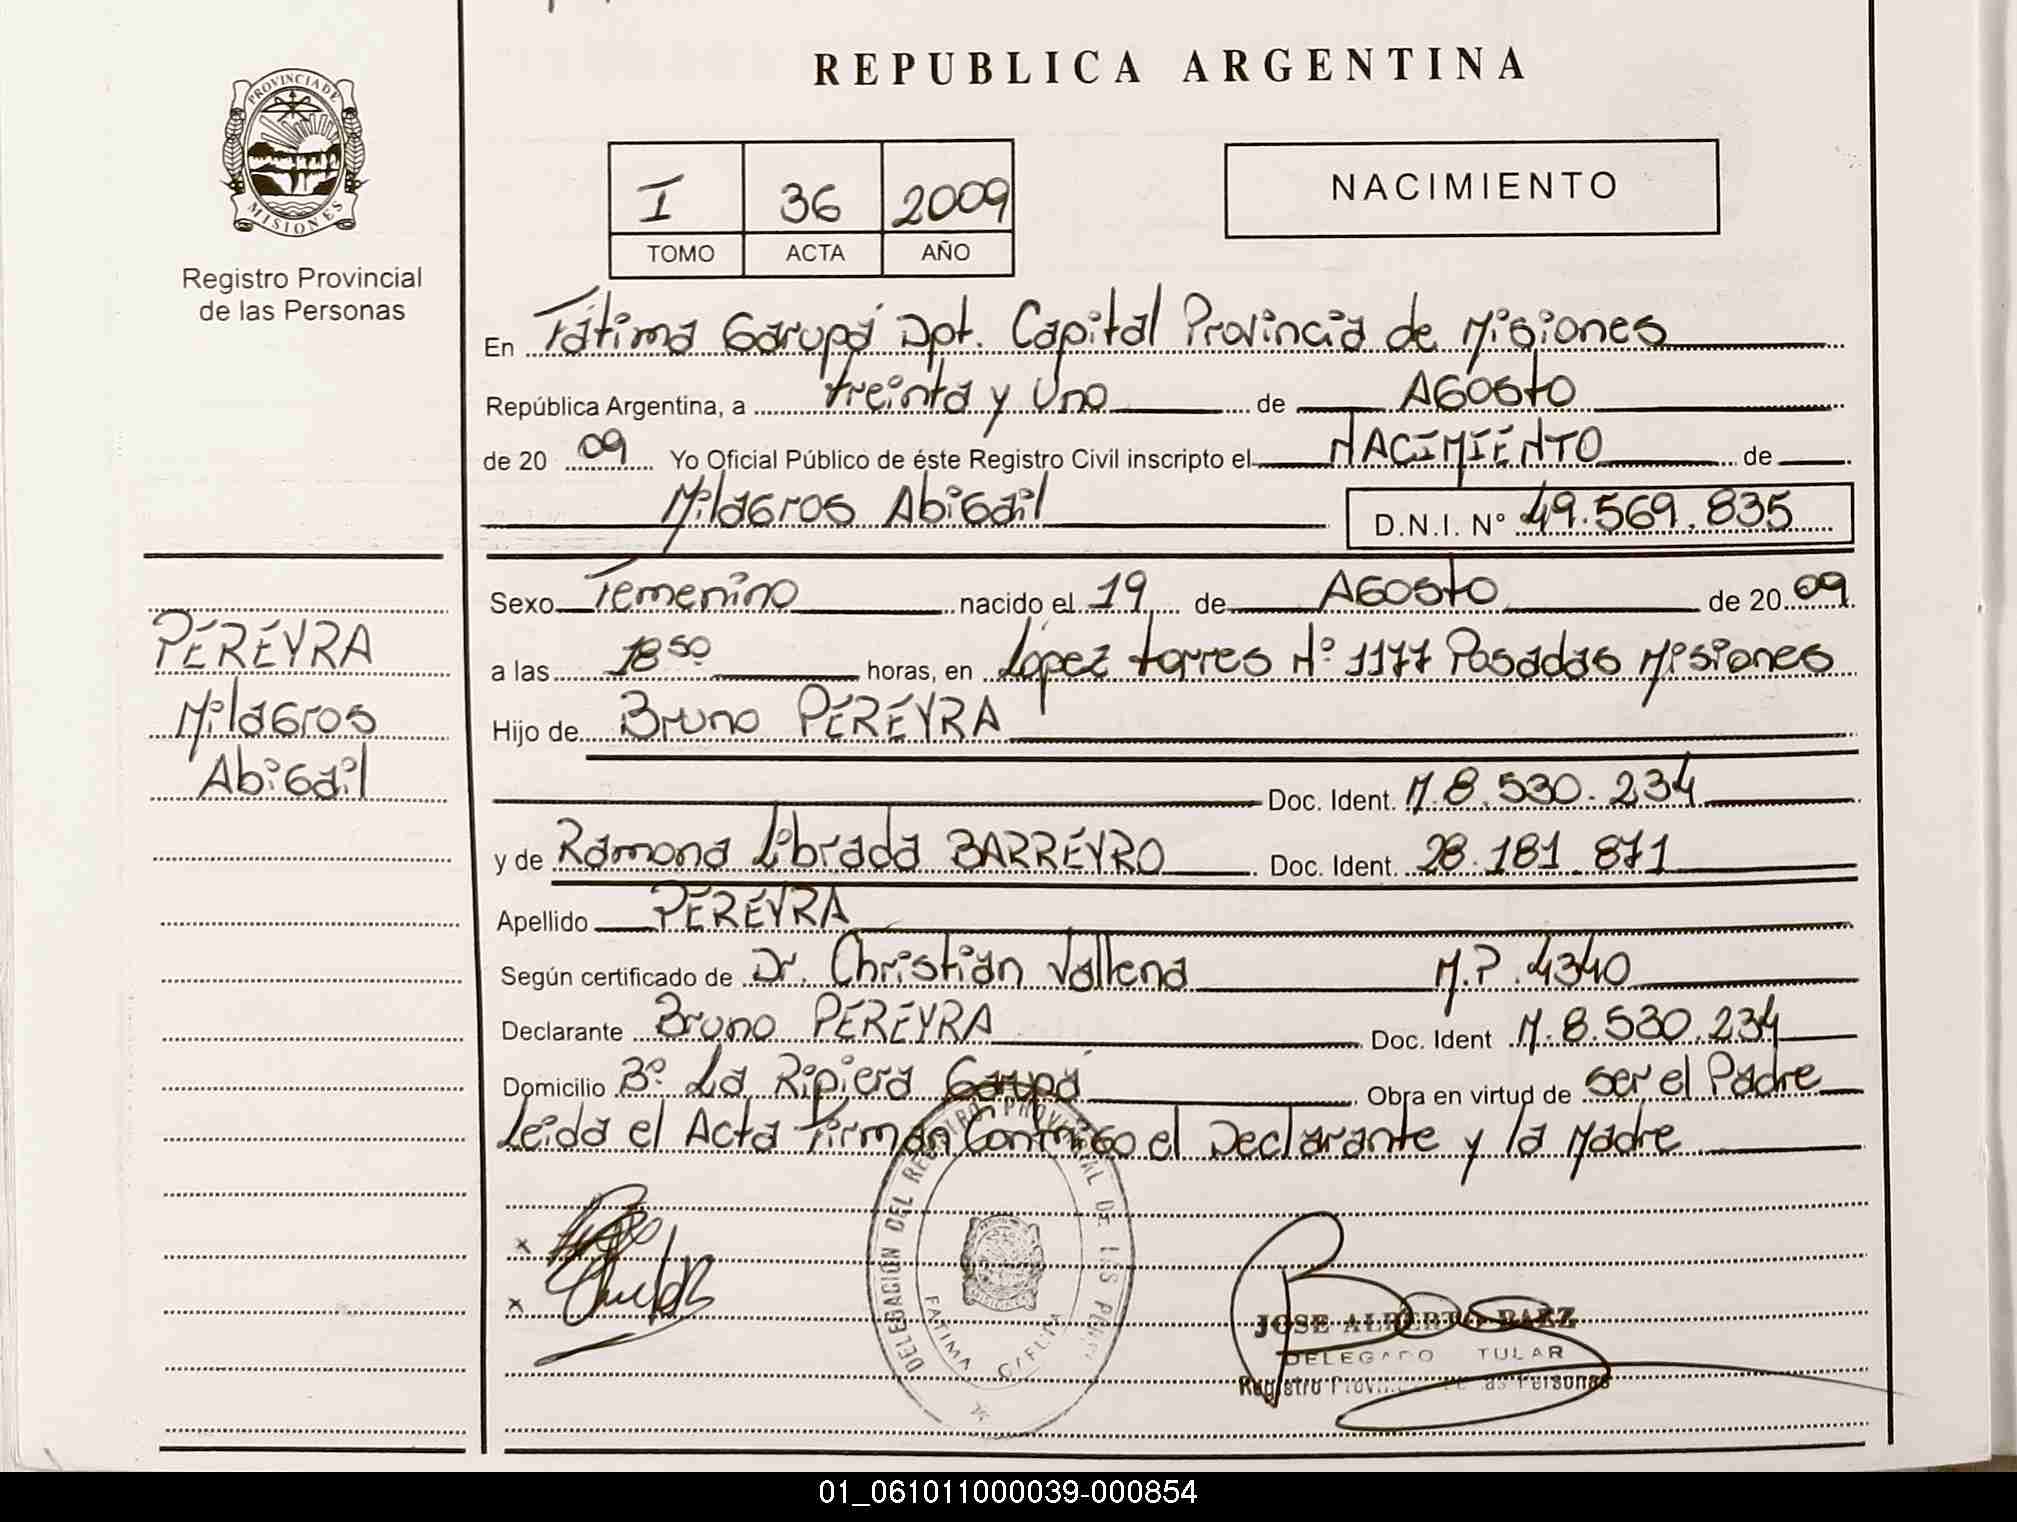 REPUBLICA ARGENTINA
PROVINCIA DE MISIONES
Registro Provincial
de las Personas
I 36 2009
TOMO ACTA AÑO
NACIMIENTO
En Fátima Garupá Dpt. Capital Provincia de Misiones
República Argentina, a treinta y Uno de AGosto
de 20 09 Yo Oficial Público de éste Registro Civil inscripto el NACIMIENTO de
MilaGros AbiGail D.N.I. Nº 49.569.835
PEREYRA
MilaGros
AbiGail
Sexo Femenino nacido el 19 de AGosto de 20 09
a las 18 50 horas, en López torres Nº 1177 Posadas Misiones
Hijo de Bruno PEREYRA
Doc. Ident. M.8.530.234
y de Ramona Librada BARREYRO Doc. Ident. 28.181.871
Apellido PEREYRA
Según certificado de Dr. Christian Vallena M.P.4340
Declarante Bruno PEREYRA Doc. Ident M.8.530.234
Domicilio Bº La Ripiera Garupá Obra en virtud de ser el Padre
Leida el Acta Firman ConmiGo el Declarante y la Madre
DELEGACION DEL REGISTRO PROVINCIAL DE LAS
FATIMA
JOSE ALBERTO BAEZ
DELEGADO TULAR
Registro as Personas
01_061011000039-000854